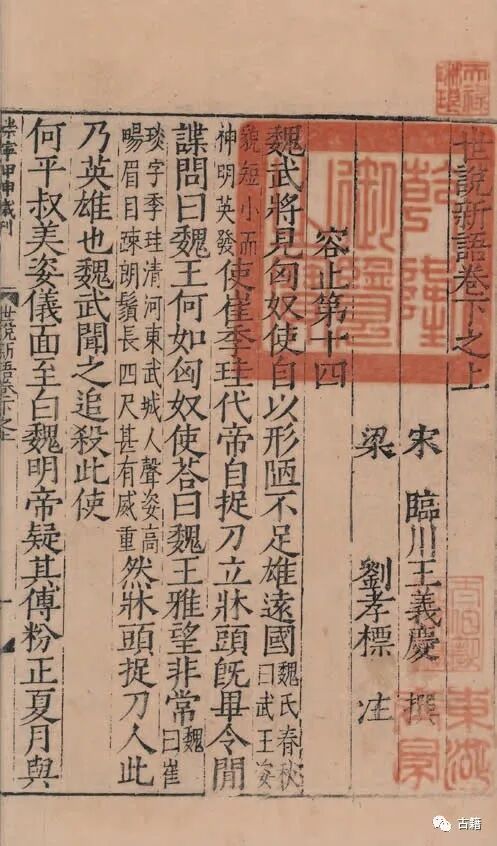 世說新語卷下之上
宋 臨川王義慶 撰
梁 劉孝標 注
容止第十四
魏武將見匈奴使自以形陋不足雄遠國魏氏春秋曰武王姿
貌短小而神明英發使崔季珪代帝自捉刀立牀頭旣畢令間
諜問曰魏王何如匈奴使荅曰魏王雅望非常魏曰崔
琰字季珪清河東武城人聲姿高暢眉目疎朗鬚長四尺甚有威重然牀頭捉刀人此
乃英雄也魏武聞之追殺此使
何平叔美姿儀面至白魏明帝疑其傅粉正夏月與
世說新語卷下之上
一
乾隆御覽之寶
天祿琳琅
東湖
古籍